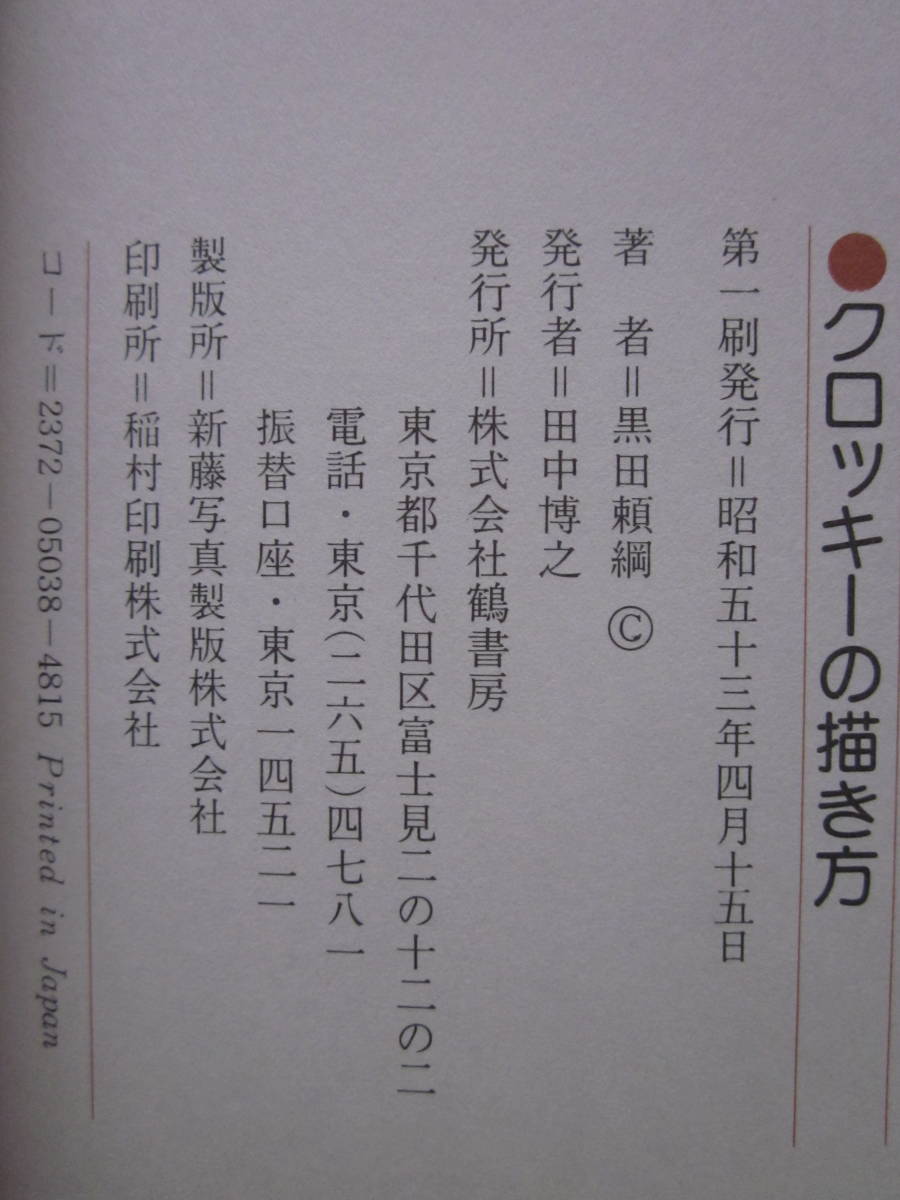 ●クロッキーの描き方
第一刷発行＝昭和五十三年四月十五日
著　者＝黒田頼綱 ©
発行者＝田中博之
発行所＝株式会社鶴書房
東京都千代田区富士見二の十二の二
電話・東京(二六五)四七八一
振替口座・東京一四五二一
製版所＝新藤写真製版株式会社
印刷所＝稲村印刷株式会社
コード＝2372－05038－4815 Printed in Japan